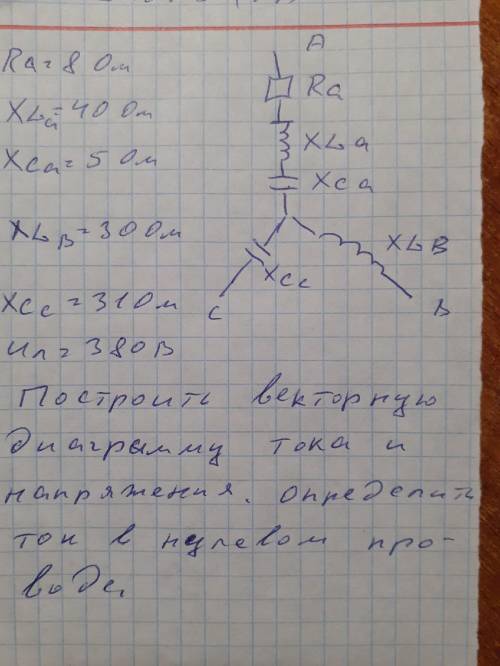 Ra=8 Ом
XLa=40 Ом
XCa=5 Ом
XLB=30 Ом
XCc=31 Ом
Uл=380В
A
Ra
XLa
XCa
XLB
XCc
C
B
Построить векторную
диаграмму тока и
напряжения. Определить
ток в нулевом про-
воде